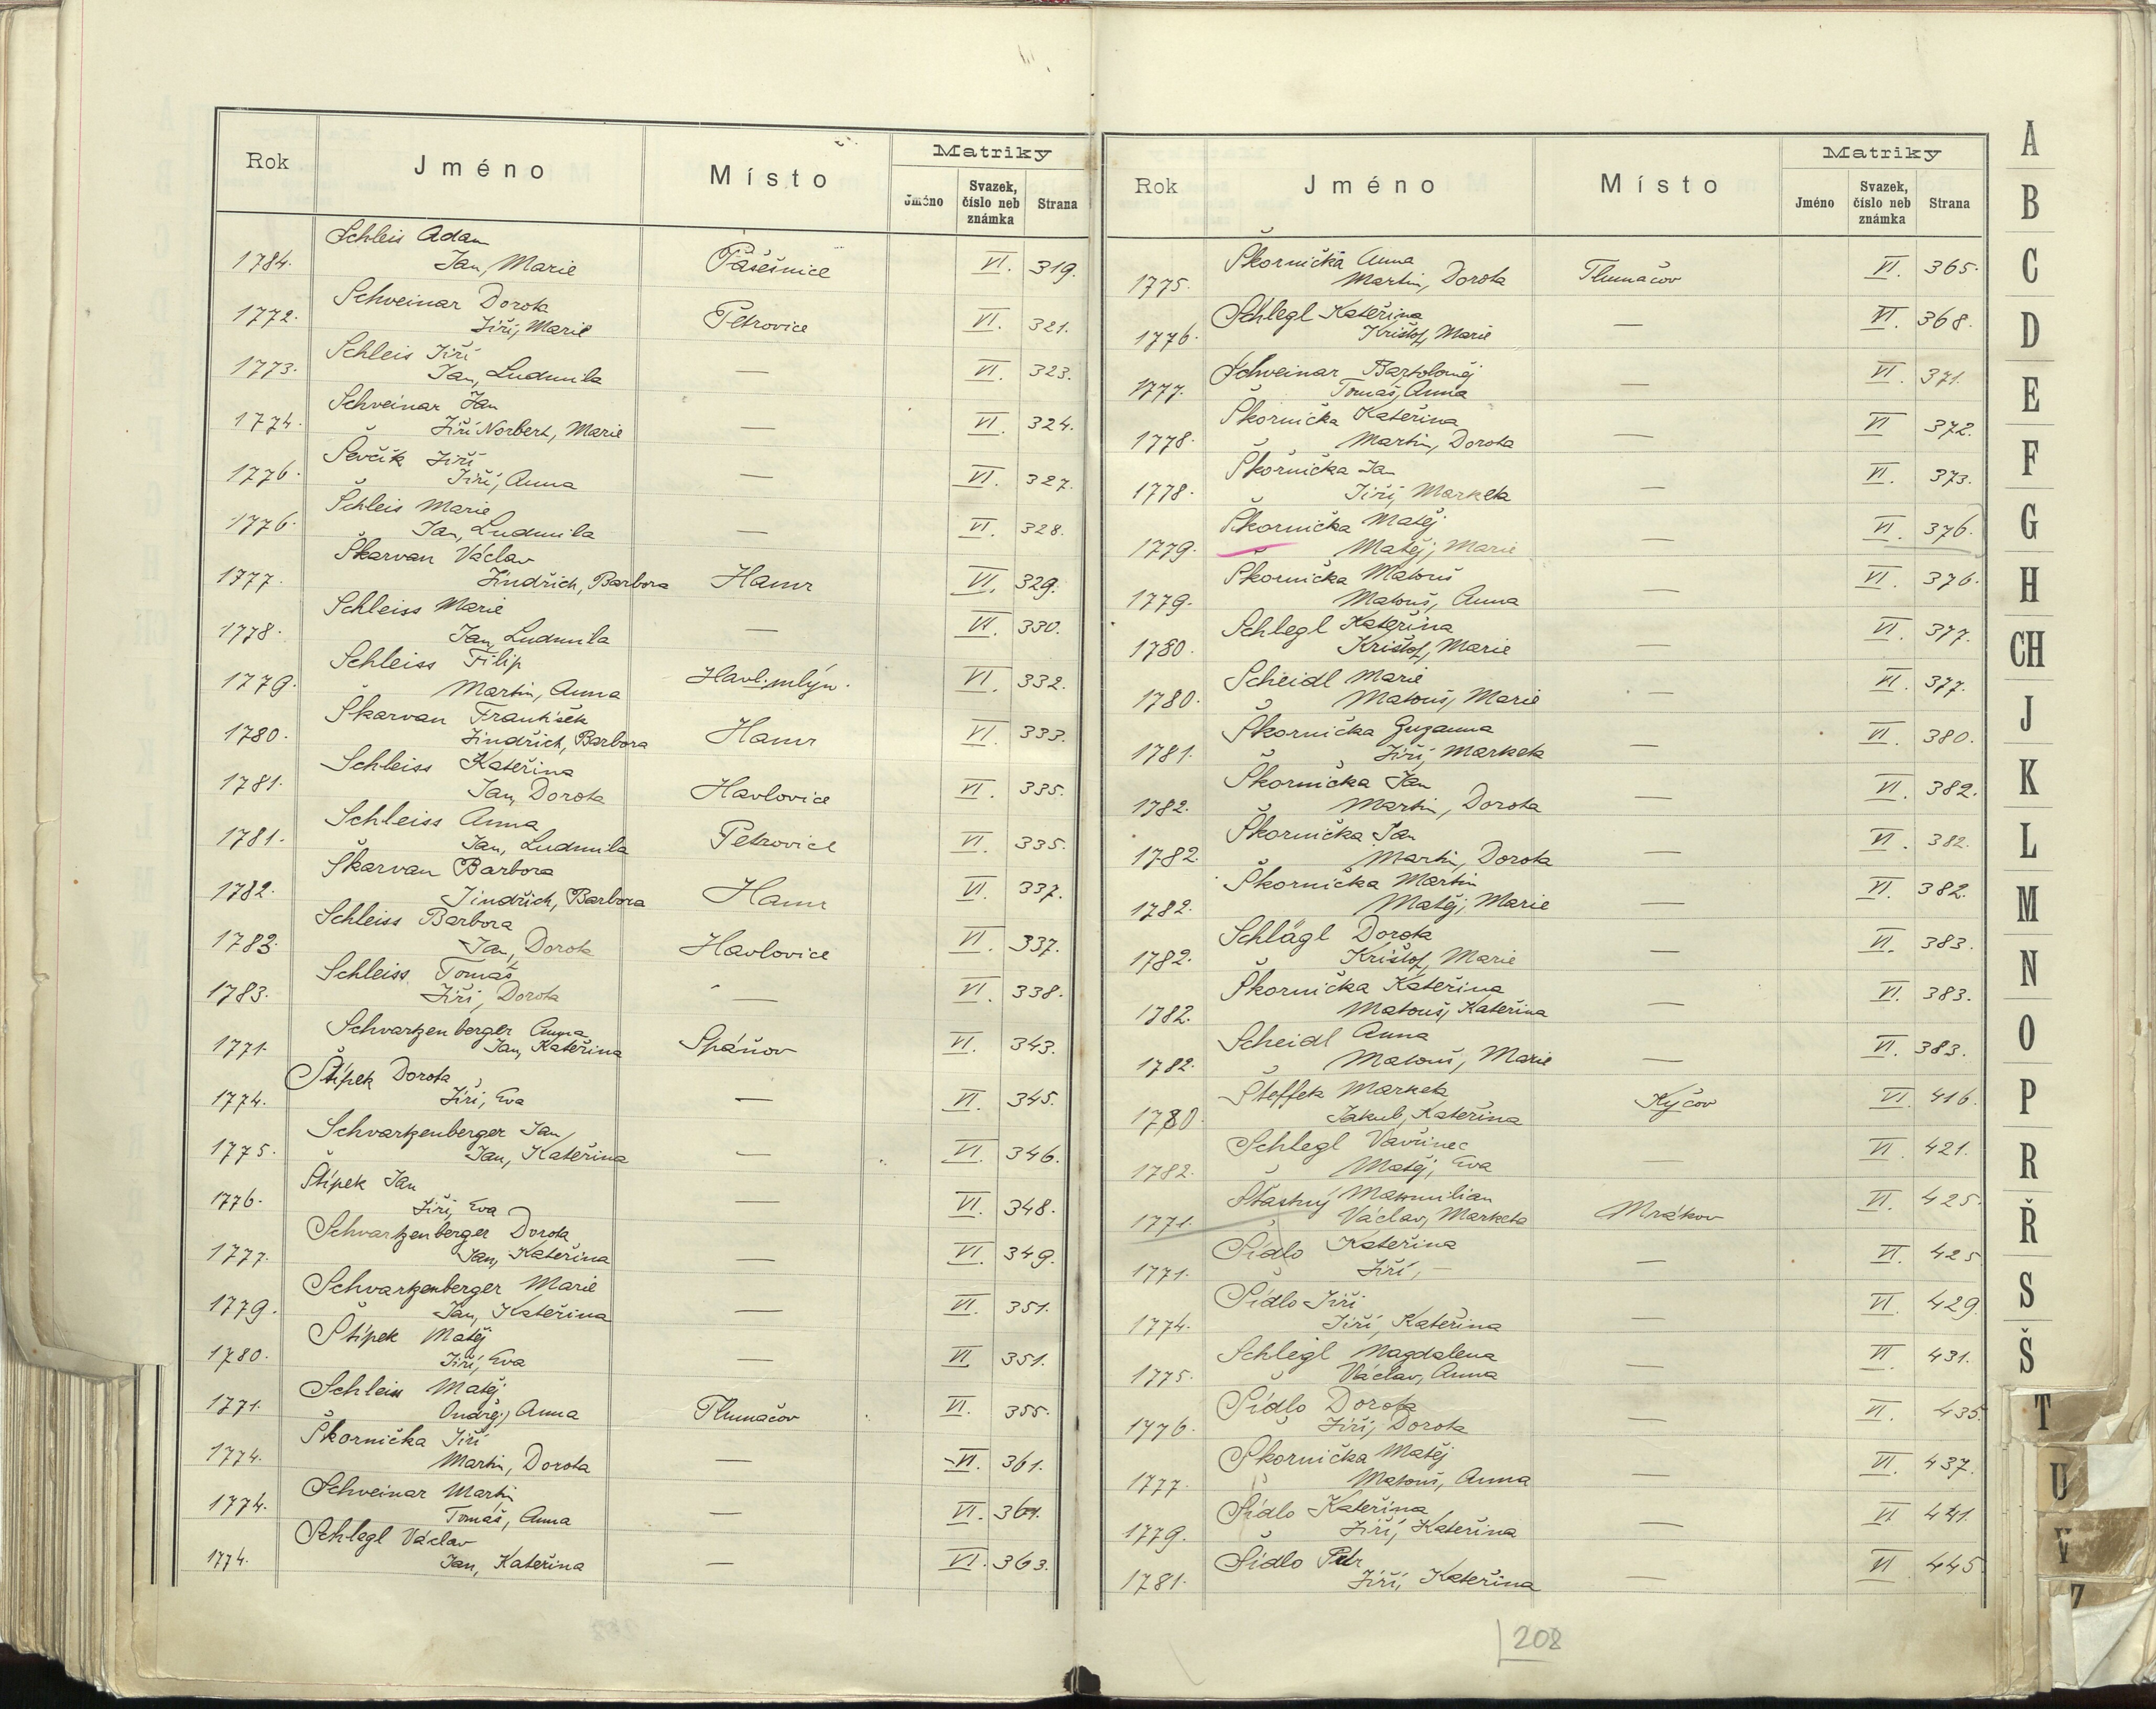 Rok Jméno Místo Matriky
Jméno Svazek, číslo neb známka Strana
Schleis Adam
1784. Jan, Marie Pasešnice VI. 319.
Schveinar Dorota
1772. Jiří, Marie Petrovice VI. 321.
Schleis Jiří
1773. Jan, Ludmila — VI. 323.
Schveinar Jan
1774. Jiří Norbert, Marie — VI. 324.
Ševčík Jiří
1776. Jiří, Anna — VI. 327.
Schleis Marie
1776. Jan, Ludmila — VI. 328.
Škarvan Václav
1777. Jindřich, Barbora Hamr VI. 329.
Schleiss Marie
1778. Jan, Ludmila — VI. 330.
Schleiss Filip
1779. Martin, Anna Havl. mlýn. VI. 332.
Škarvan František
1780. Jindřich, Barbora Hamr VI. 333.
Schleiss Kateřina
1781. Jan, Dorota Havlovice VI. 335.
Schleiss Anna
1781. Jan, Ludmila Petrovice VI. 335.
Škarvan Barbora
1782. Jindřich, Barbora Hamr VI. 337.
Schleiss Barbora
1783. Jan, Dorota Havlovice VI. 337.
Schleiss Tomaš
1783. Jiří, Dorota — VI. 338.
Schvartzenberger Anna
1771. Jan, Kateřina Spáňov VI. 343.
Štípek Dorota
1774. Jiří, Eva — VI. 345.
Schvartzenberger Jan
1775. Jan, Kateřina — VI. 346.
Štípek Jan
1776. Jiří, Eva — VI. 348.
Schvartzenberger Dorota
1777. Jan, Kateřina — VI. 349.
Schvartzenberger Marie
1779. Jan, Kateřina — VI. 351.
Štípek Matěj
1780. Jiří, Eva — VI. 351.
Schleiss Matěj
1771. Ondřej, Anna Tlumačov VI. 355.
Škornička Jiří
1774. Martin, Dorota — VI. 361.
Schveinar Martin
1774. Tomáš, Anna — VI.
Schlegl Václav
1774. Jan, Kateřina — VI. 363.
Rok Jméno Místo Matriky
Jméno Svazek, číslo neb známka Strana
Škornička Anna
1775. Martin, Dorota Tlumačov VI. 365.
Schlegl Kateřina
1776. Krištof, Marie — VI. 368.
Schveinar Bartoloměj
1777. Tomaš, Anna — VI. 371.
Škornička Kateřina
1778. Martin, Dorota — VI 372.
Škornička Jan
1778. Jiří, Marketa — VI. 373.
Škornička Matěj
1779. Matěj, Marie — VI. 376.
Škornička Matouš
1779. Matouš, Anna — VI. 376.
Schlegl Kateřina
1780. Krištof, Marie — VI. 377.
Scheidl Marie
1780. Matouš, Marie — VI. 377.
Škornička Zuzanna
1781. Jiří, Marketa — VI. 380.
Škornička Jan
1782. Martin, Dorota — VI. 382.
Škornička Jan
1782. Martin, Dorota — VI. 382.
Škornička Martin
1782. Matěj, Marie — VI. 382.
Schlägl Dorota
1782. Krištof, Marie — VI. 383.
Škornička Kateřina
1782. Matouš, Kateřina — VI. 383.
Scheidl Anna
1782. Matouš, Marie — VI. 383.
Šteffek Marketa
1780 Jakub, Kateřina Kyčov VI. 416.
Schlegl Vavřinec
1782. Matěj, Eva — VI. 421.
Šťastný Maxmilian
1771. Václav, Marketa Mrákov VI. 425.
Šídlo Kateřina
1771. Jiří, — — VI. 425
Šídlo Jiří
1774. Jiří, Kateřina — VI. 429.
Schlegl Magdalena
1775. Václav, Anna — VI 431.
Šídlo Dorota
1776. Jiří, Dorota — VI. 435.
Škornička Matěj
1777. Matouš, Anna — VI. 437.
Šídlo Kateřina
1779. Jiří, Kateřina — VI 441.
Šídlo Petr
1781. Jiří, Kateřina — VI 445
208
A
B
C
D
E
F
G
H
CH
J
K
L
M
N
O
P
R
Ř
S
Š
T
U
V
Z